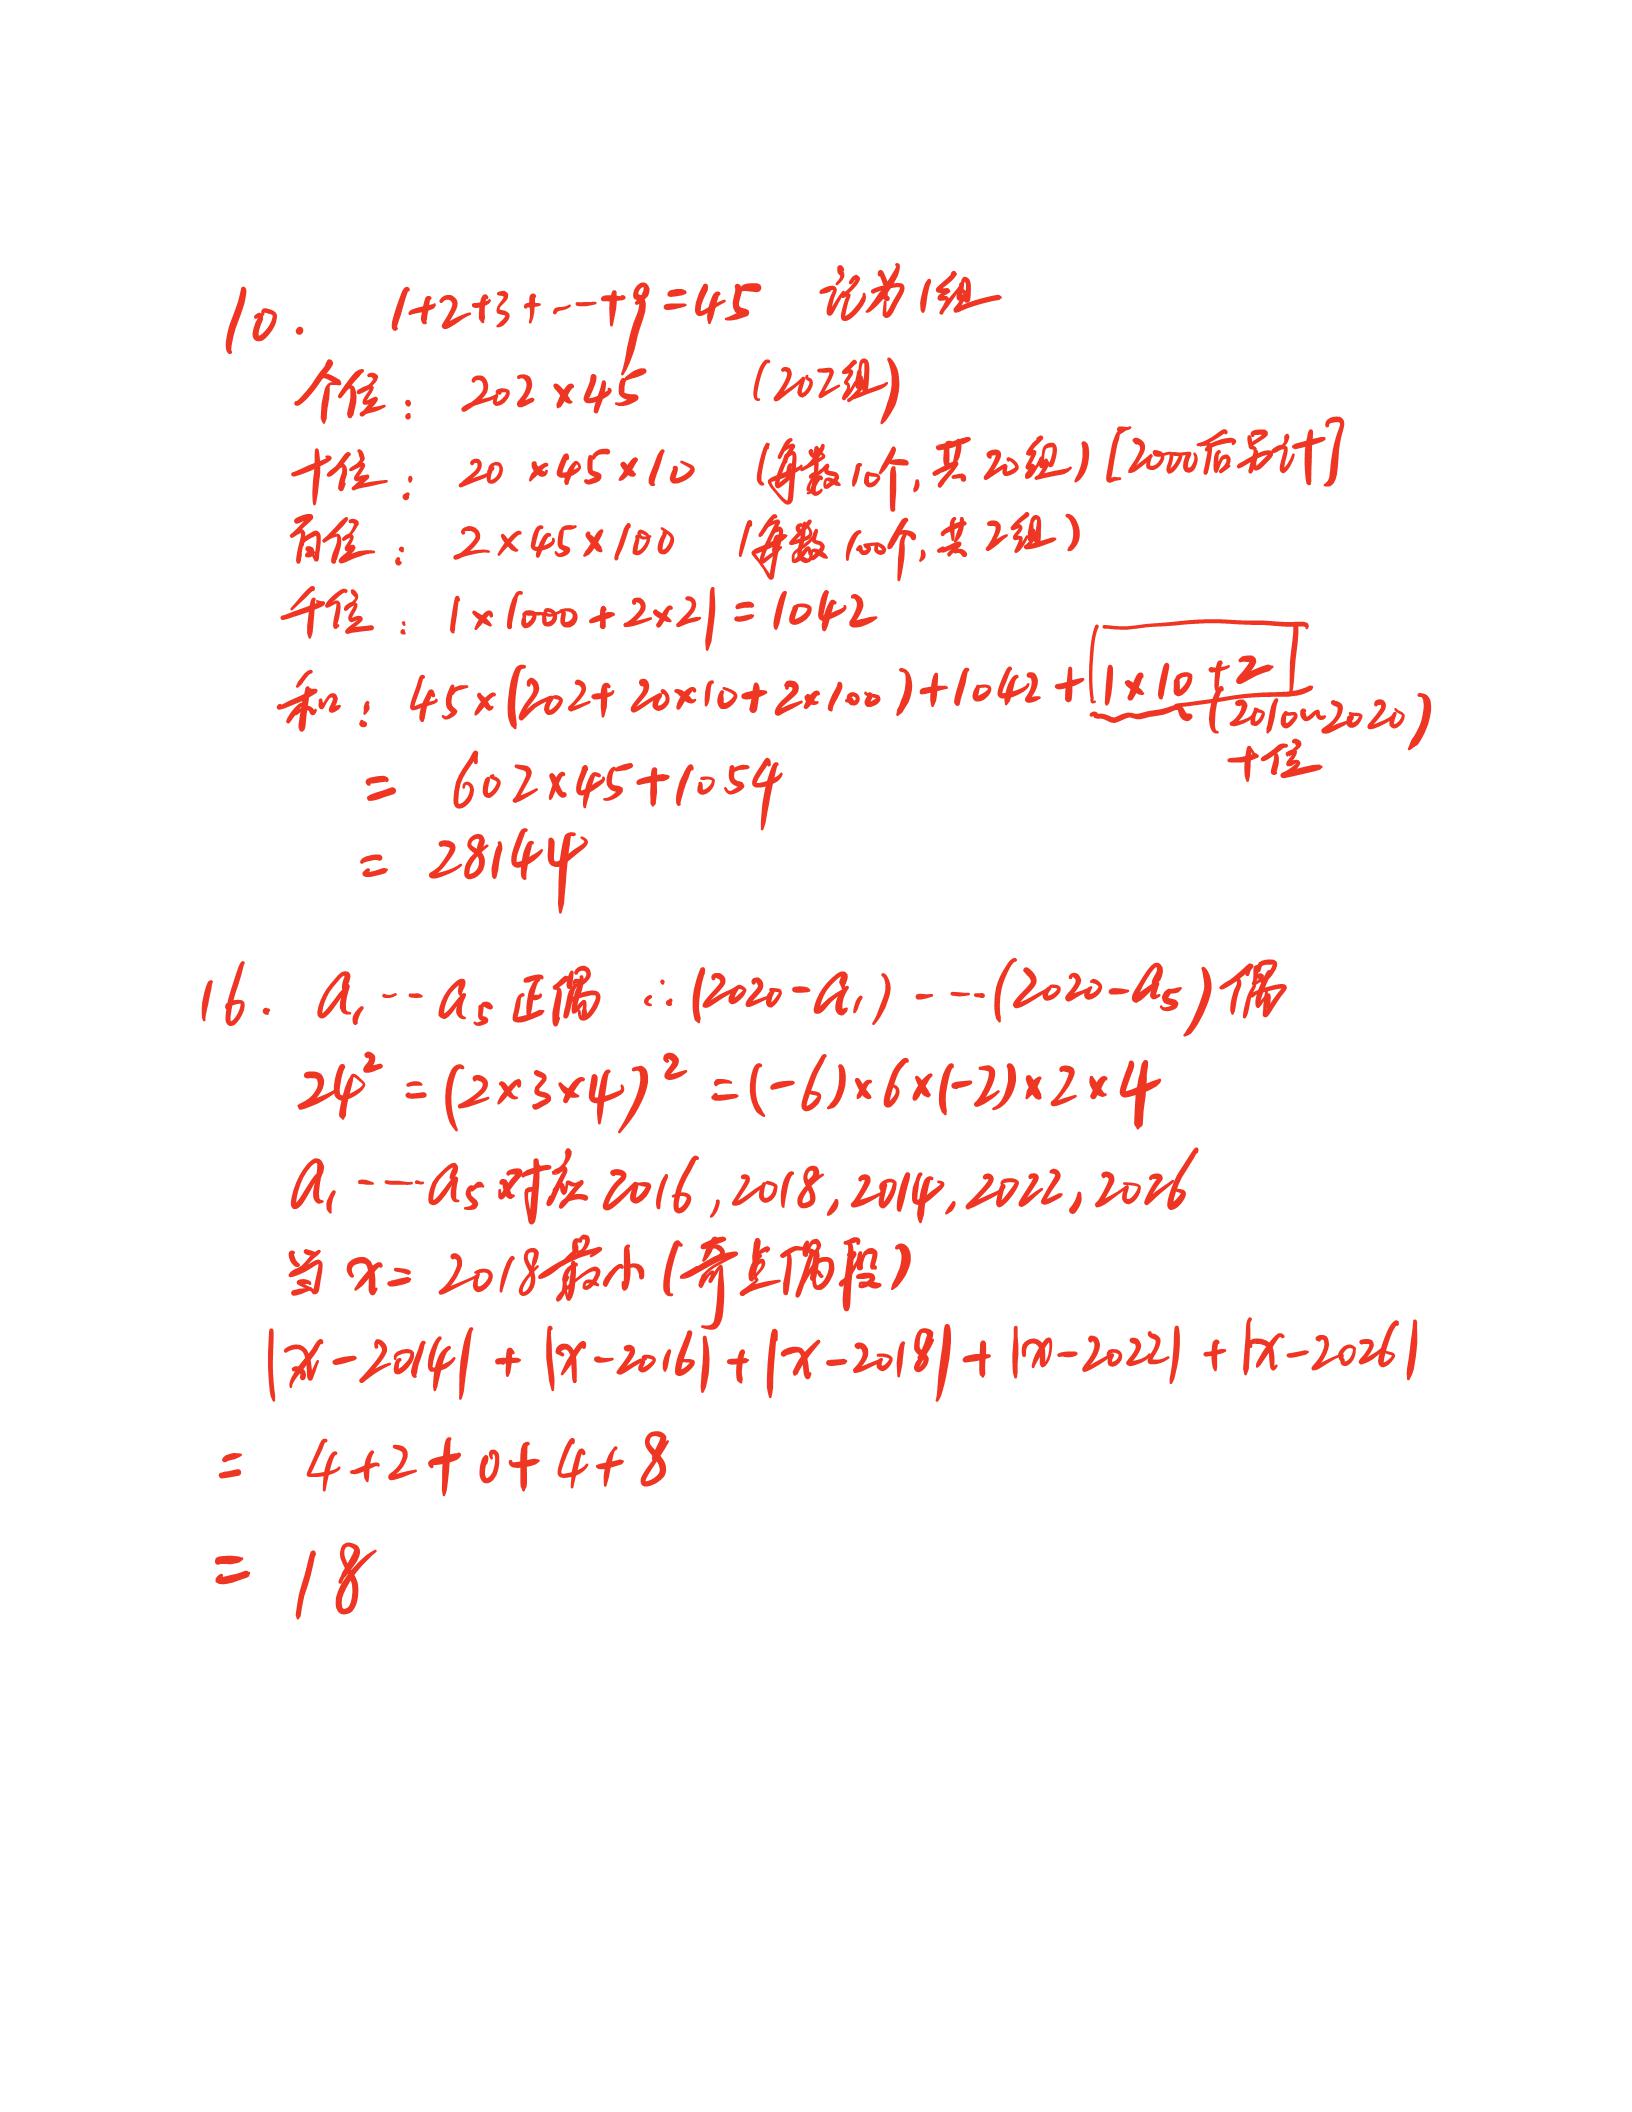 10. 1+2+3+……+9=45 记为1组
个位: 202×45 (202组)
十位: 20×45×10 (每数10个,共20组) [2000后另计]
百位: 2×45×100 (每数100个,共2组)
千位: 1×1000+2×21=1042
和: 45×(202+20×10+2×100)+1042+1×10+2
(2010~2020)
十位
= 602×45+1054
= 28144
16. a₁……a₅正偶 ∴(2020-a₁)……(2020-a₅)偶
24²=(2×3×4)²=(-6)×6×(-2)×2×4
a₁……a₅对应2016,2018,2014,2022,2026
当x=2018最小(奇点偶段)
|x-2014|+|x-2016|+|x-2018|+|x-2022|+|x-2026|
= 4+2+0+4+8
= 18